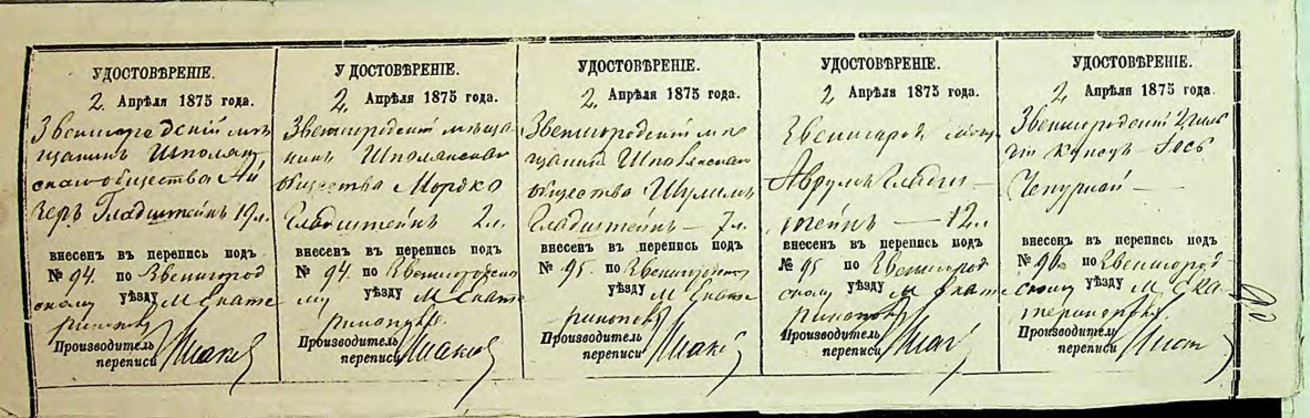 УДОСТОВѢРЕНІЕ.
2 Апрѣля 1875 года.
Звенигородскій мѣ
щанинъ Шполян
скаго общества Ай
зеръ Гладштейнъ 19 л.
внесенъ въ перепись подъ
№ 94. по Звенигород
скому уѣзду М Екате
ринополь
Производитель
переписи
УДОСТОВѢРЕНІЕ.
2, Апрѣля 1875 года.
Звенигородскій мѣща-
нинъ Шполянскаго
общества Мордко
Гладштейнъ 2 л.
внесенъ въ перепись подъ
№ 94. по Звенигородско
му уѣзду М Екате
ринополь.
Производитель
переписи
УДОСТОВѢРЕНІЕ.
2, Апрѣля 1875 года.
Звенигородскій мѣ
щанинъ Шполянскаго
общества Шулимъ
Гладштейнъ — 7 л.
внесенъ въ перепись подъ
№ 95. по Звенигородско
уѣзду М Екате
ринополь
Производитель
переписи
УДОСТОВѢРЕНІЕ.
2 Апрѣля 1875 года.
Звенигород мѣщ
Аврумъ Гладш—
тейнъ — 12 л.
внесенъ въ перепись подъ
№ 95 по Звенигород
скому уѣзду М Екате
ринополь
Производитель
переписи
УДОСТОВѢРЕНІЕ.
2 Апрѣля 1875 года.
Звенигородскій 2 гиль
діи купецъ — Іось
Чепурной —
внесенъ въ перепись подъ
№ 96. по Звенигород-
скому уѣзду М Ека-
теринополь.
Производитель
переписи